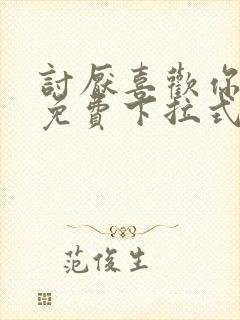 討厭喜歡你
免費下拉式
范俊生